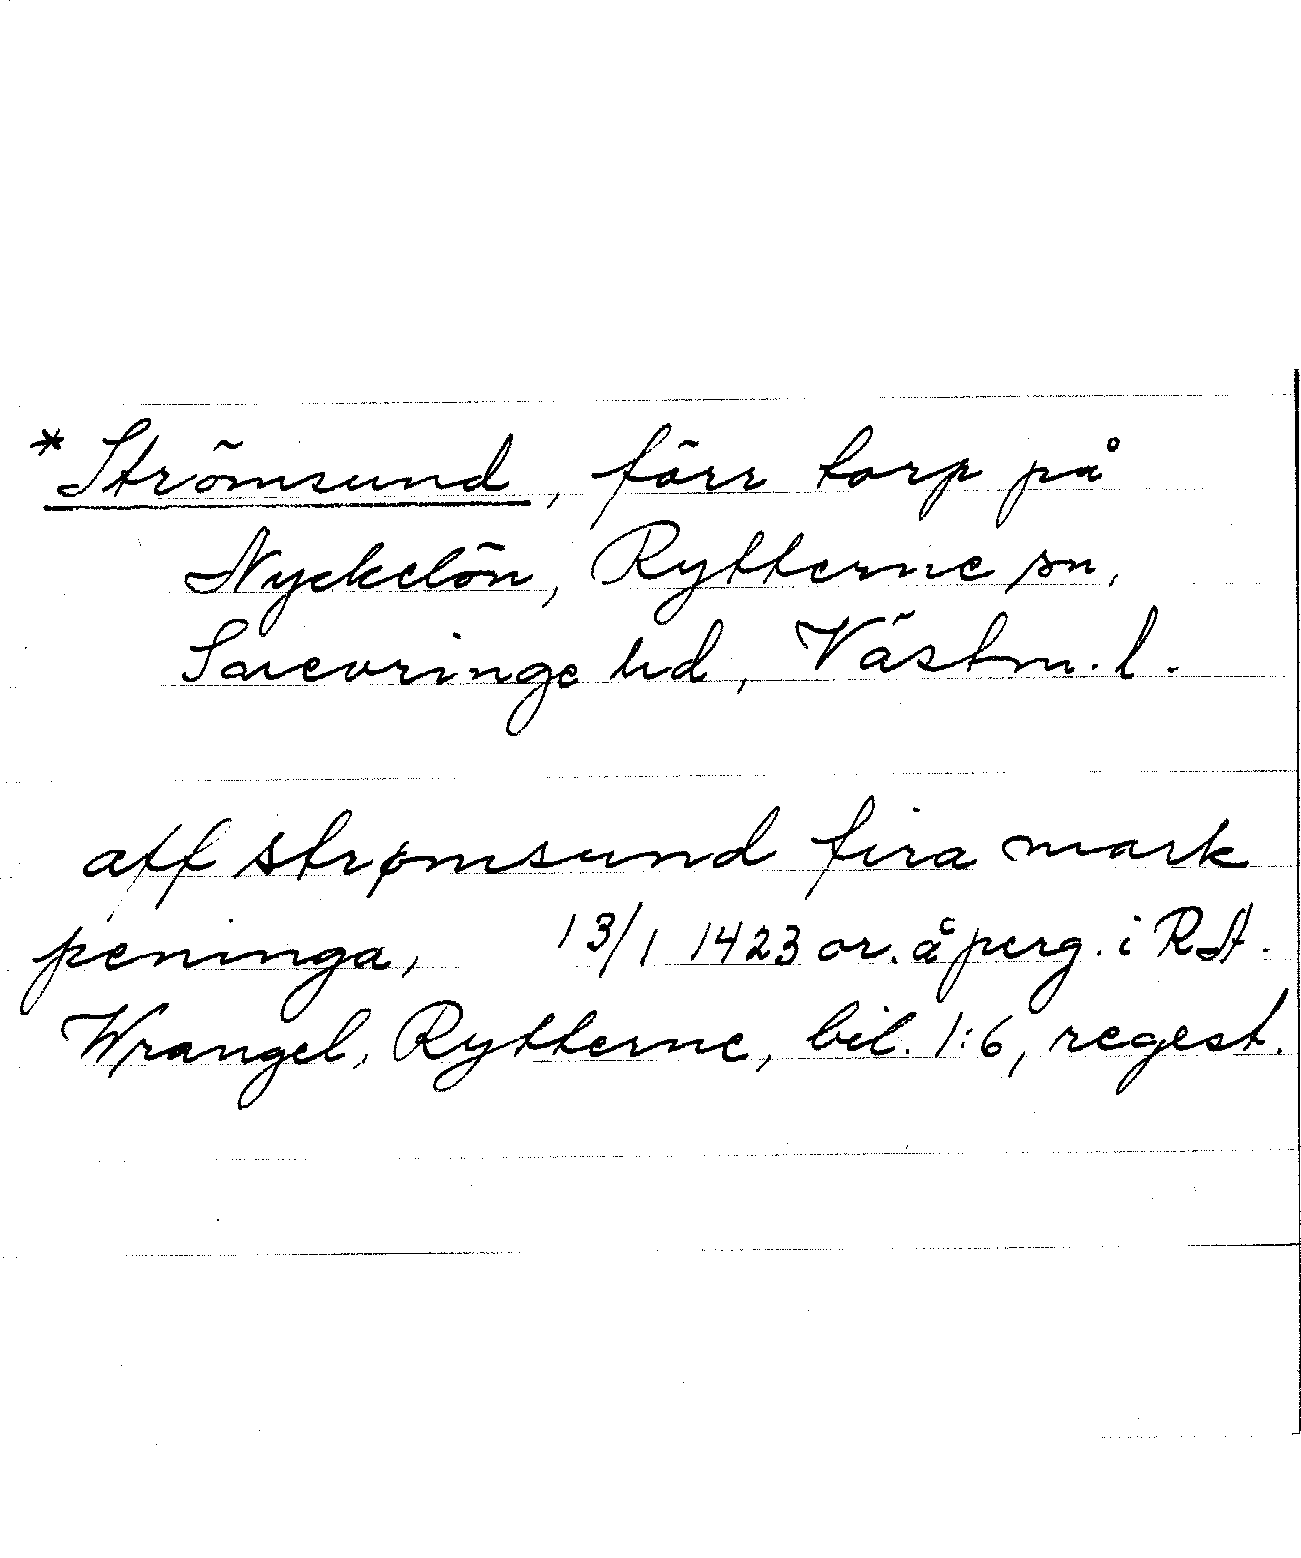 * Strömsund, förr torp på
Nyckelön, Rytterne sn,
Snevringe hd, Västm. l.
aff strømsund fira mark
peninga, 13/1 1423 or. å perg. i RA.
Wrangel, Rytterne, bil. 1:6, regest.